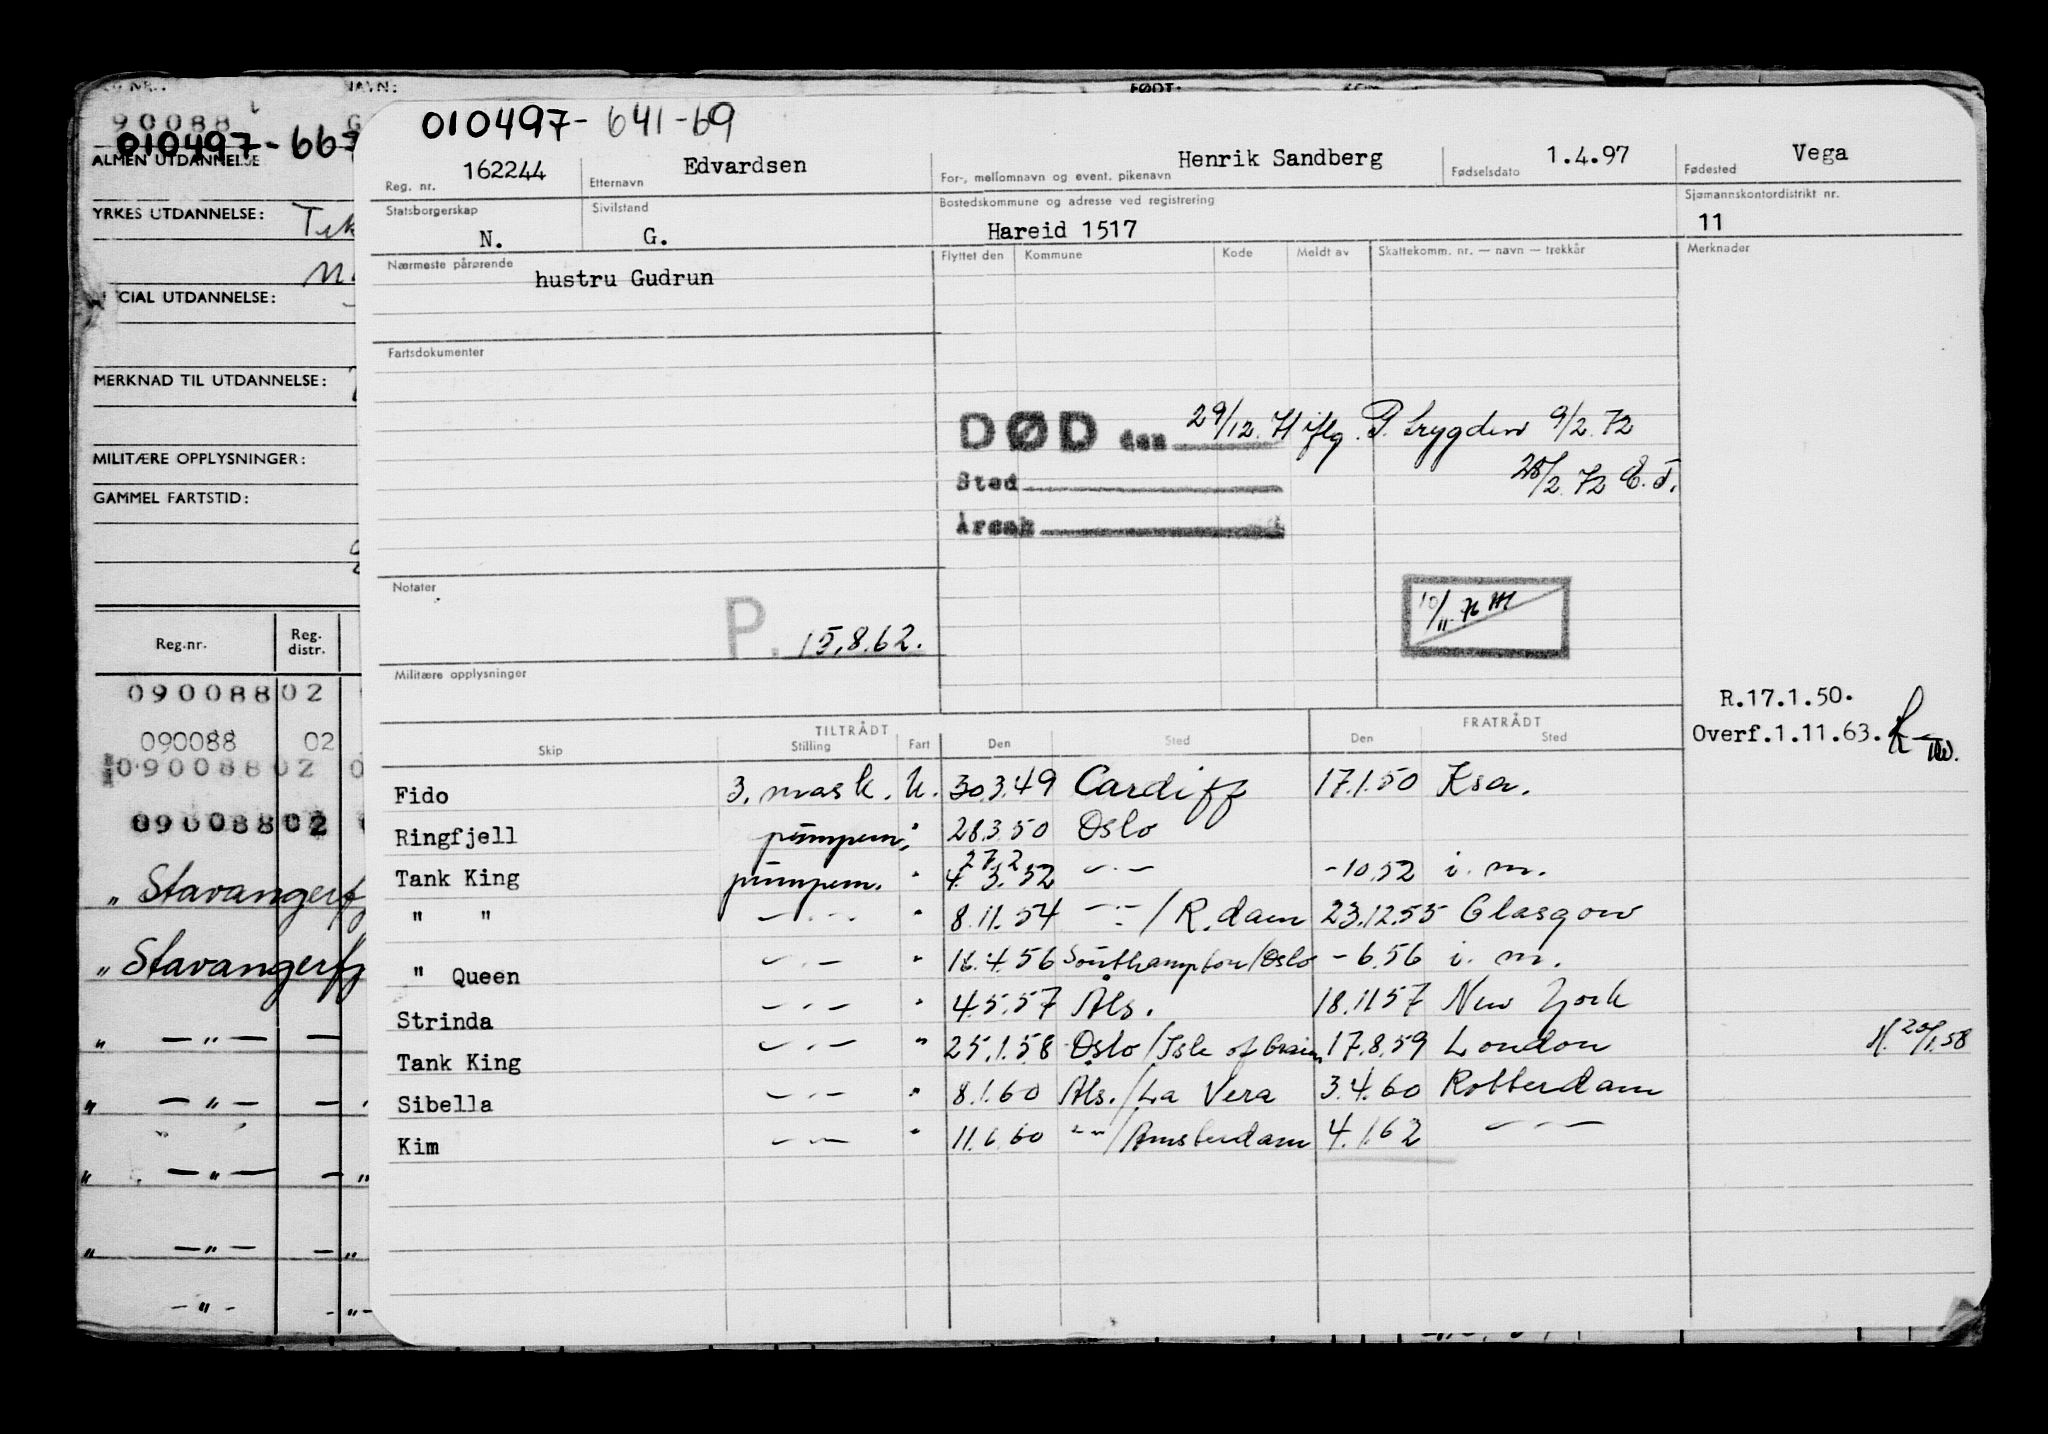 REG.NR.: NAVN: FØDT:
90088
010497-66
ALMEN UTDANNELSE
YRKES UTDANNELSE:
CIAL UTDANNELSE:
MERKNAD TIL UTDANNELSE:
MILITÆRE OPPLYSNINGER:
GAMMEL FARTSTID:
Reg.nr. Reg. distr.
09008802
090088 02
09008802
09008802
" Stavangerfj
" Stavangerfj
" — " — —
" — " — —
" — " — — "
" — " — — "
— " — — " —
010497-641-69
162244 Edvardsen Henrik Sandberg 1.4.97 Vega
Reg. nr. Etternavn For-, mellomnavn og event. pikenavn Fødselsdato Fødested
Statsborgerskap Sivilstand Bostedskommune og adresse ved registrering Sjømannskontordistrikt nr.
N. G. Hareid 1517 11
Nærmeste pårørende Flyttet den Kommune Kode Meldt av Skattekomm. nr. — navn — trekkår Merknader
hustru Gudrun
Fartsdokumenter
DØD den 29/12. 71 iflg. P. Trygden 9/2. 72
Sted 28/2 72 E. T.
Årsak
Notater
P. 15.8.62.
10/11.
Militære opplysninger
R.17.1.50.
Overf.1.11.63.
TILTRÅDT FRATRÅDT
Skip Stilling Fart Den Sted Den Sted
Fido 3. mask. U. 30.3.49 Cardiff 17.1.50 Ksa.
Ringfjell pumpem. " 28.3.50 Oslo
27 2
Tank King pumpem. " 4. 3. 52 — " — -10.52 i. m.
" " — " — " 8.11.54 — " — / R.dam 23.12.55 Glasgow
" Queen — " — " 16.4.56 Southampton/Oslo - 6.56 i. m.
Strinda — " — " 4.5.57 Åls. 18.11.57 New York
Tank King — " — " 25.1.58 Oslo/Isle of Grain 17.8.59 London M. 20/1.58
Sibella — " — " 8.1.60 Åls./La Vera 3.4.60 Rotterdam
Kim — " — " 11.6.60 " " / Amsterdam 4.1.62 — " —